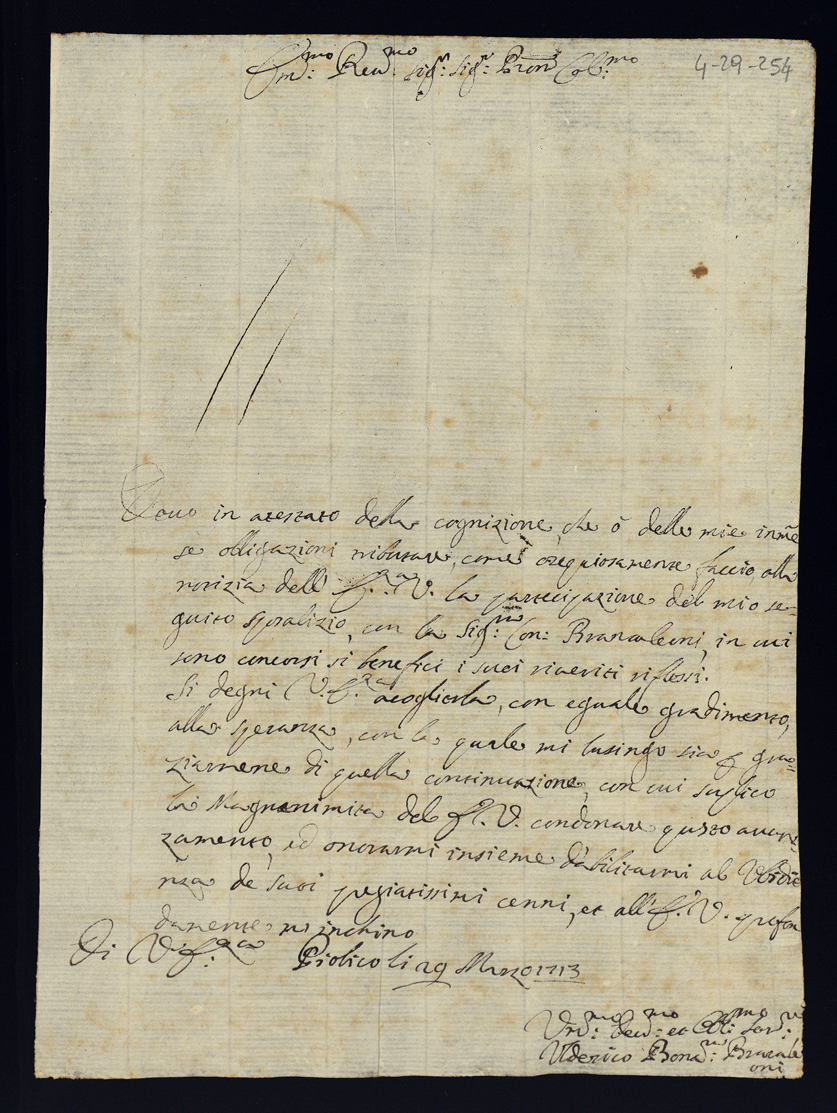 Em:mo Reu:mo Sig:r Sig:r Pron Col:mo
4-29-254
Deuo in atestato della cognizione, che ò delle mie inmẽ
se obligazioni tributare, come ozequiosamente faccio alla
notizia dell' E.za V. la partecipazione del mio se-
guito sposalizio, con la Sig:ra Con: Brancaleoni, in cui
sono concorsi si benefici i suoi riueriti riflessi.
Si degni V.E.za acoglierla, con eguale gradimento,
alla speranza, con la quale mi lusingo sia p gra=
ziarmene di quella continuazione, con cui suplico
la Magnanimita del E. V. condonare questo auan-
zamento, ed onorarmi insieme d'abilitarmi al Vbidie
nza de suoi pregiatissimi cenni, et all' E. V. profon
damente m'inchino
Di V.E:za Piobico li 29 Marzo 1713
Vm:mo Deu:mo et Obl:mo Ser:re
Vderico Bran: Brancale
oni